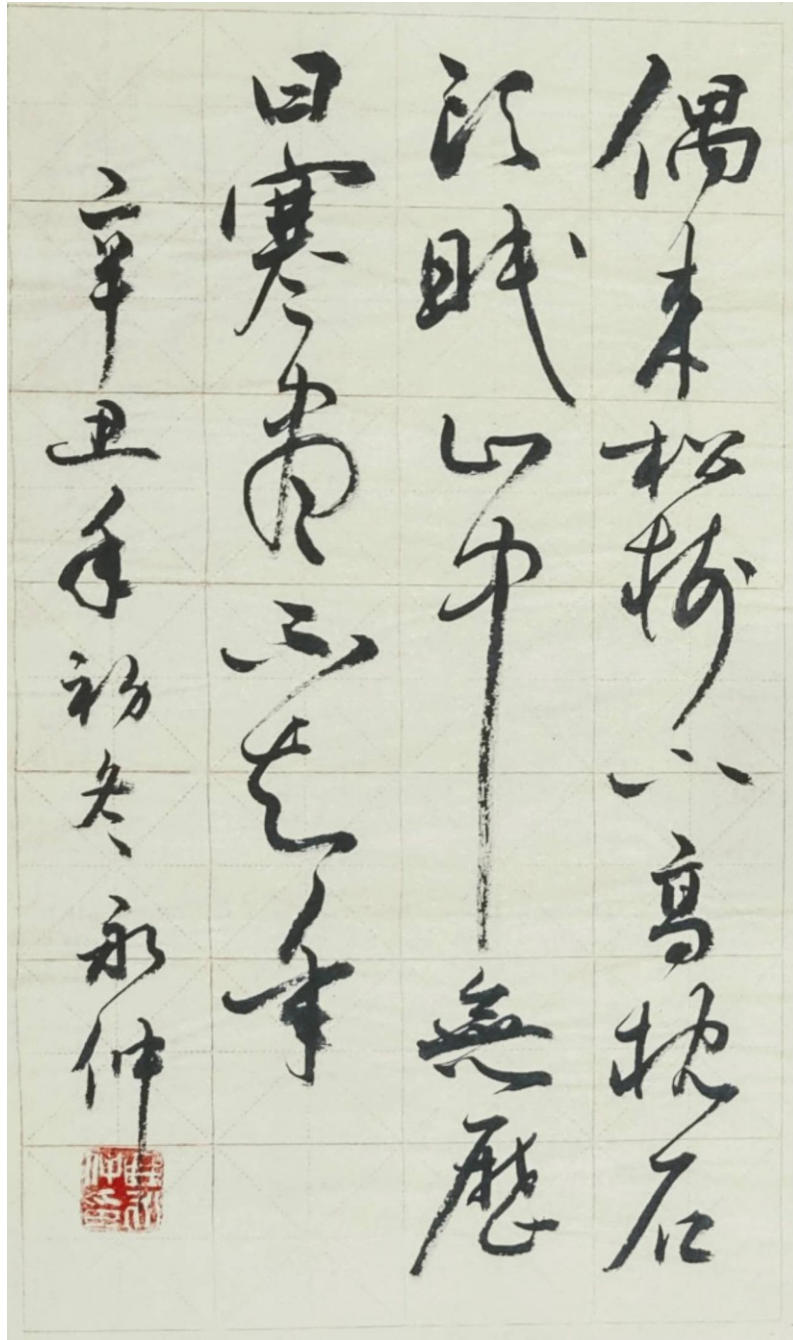 偶来松树下高枕石
头眠山中無歷
日寒尽不知年
辛丑年初冬永仲